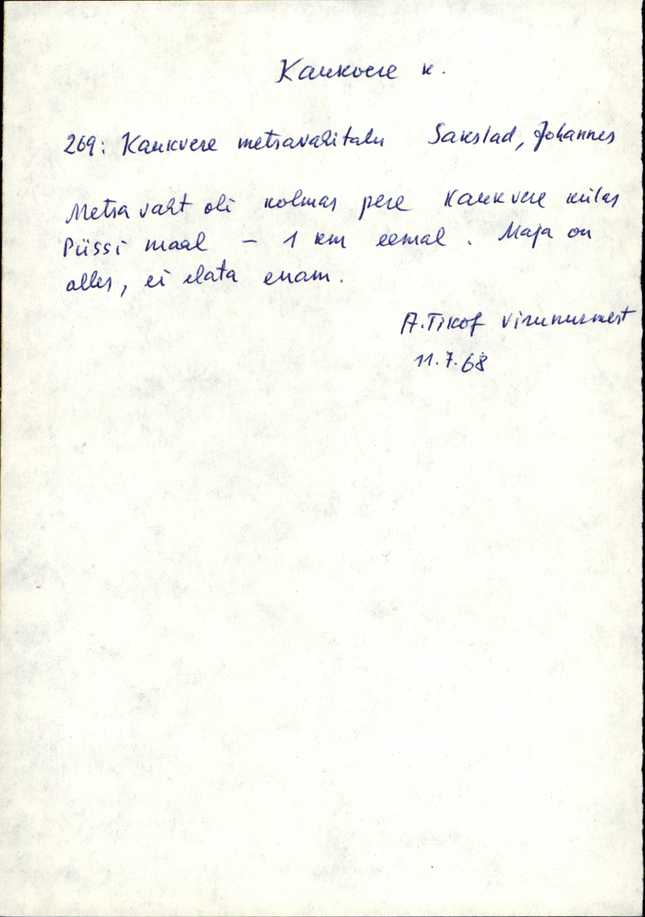 Kaukvere k.
269: Kaukvere metsavahitalu Sakslad, Johannes
Metsavaht oli kolmas pere Kaukvere külas
Püssi maal – 1 km eemal. Maja on
alles, ei elata enam.
A. Tikof Virunurmest
11.7.68